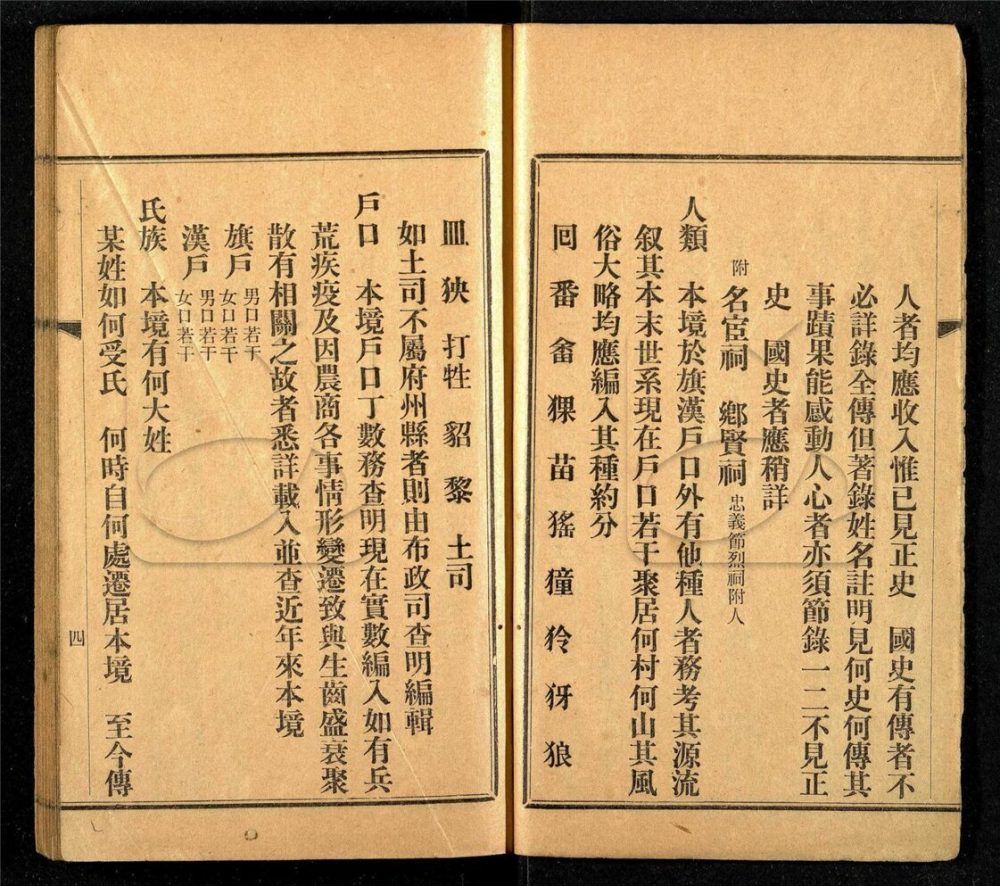 人者均應收入惟已見正史　國史有傳者不
必詳錄全傳但著錄姓名註明見何史何傳其
事蹟果能感動人心者亦須節錄一二不見正
史　國史者應稍詳
附　名宦祠　鄉賢祠　忠義節烈祠附人
人類　本境於旗漢戶口外有他種人者務考其源流
叙其本末世系現在戶口若干聚居何村何山其風
俗大略均應編入其種約分
回　番　畬　猓　苗　猺　獞　狑　犽　狼
皿　狹　打牲　貂　黎　土司
如土司不屬府州縣者則由布政司查明編輯
戶口　本境戶口丁數務查明現在實數編入如有兵
荒疾疫及因農商各事情形變遷致與生齒盛衰聚
散有相關之故者悉詳載入並查近年來本境
旗戶　男口若干　女口若干
漢戶　男口若干　女口若干
氏族　本境有何大姓
某姓如何受氏　何時自何處遷居本境　至今傳
四